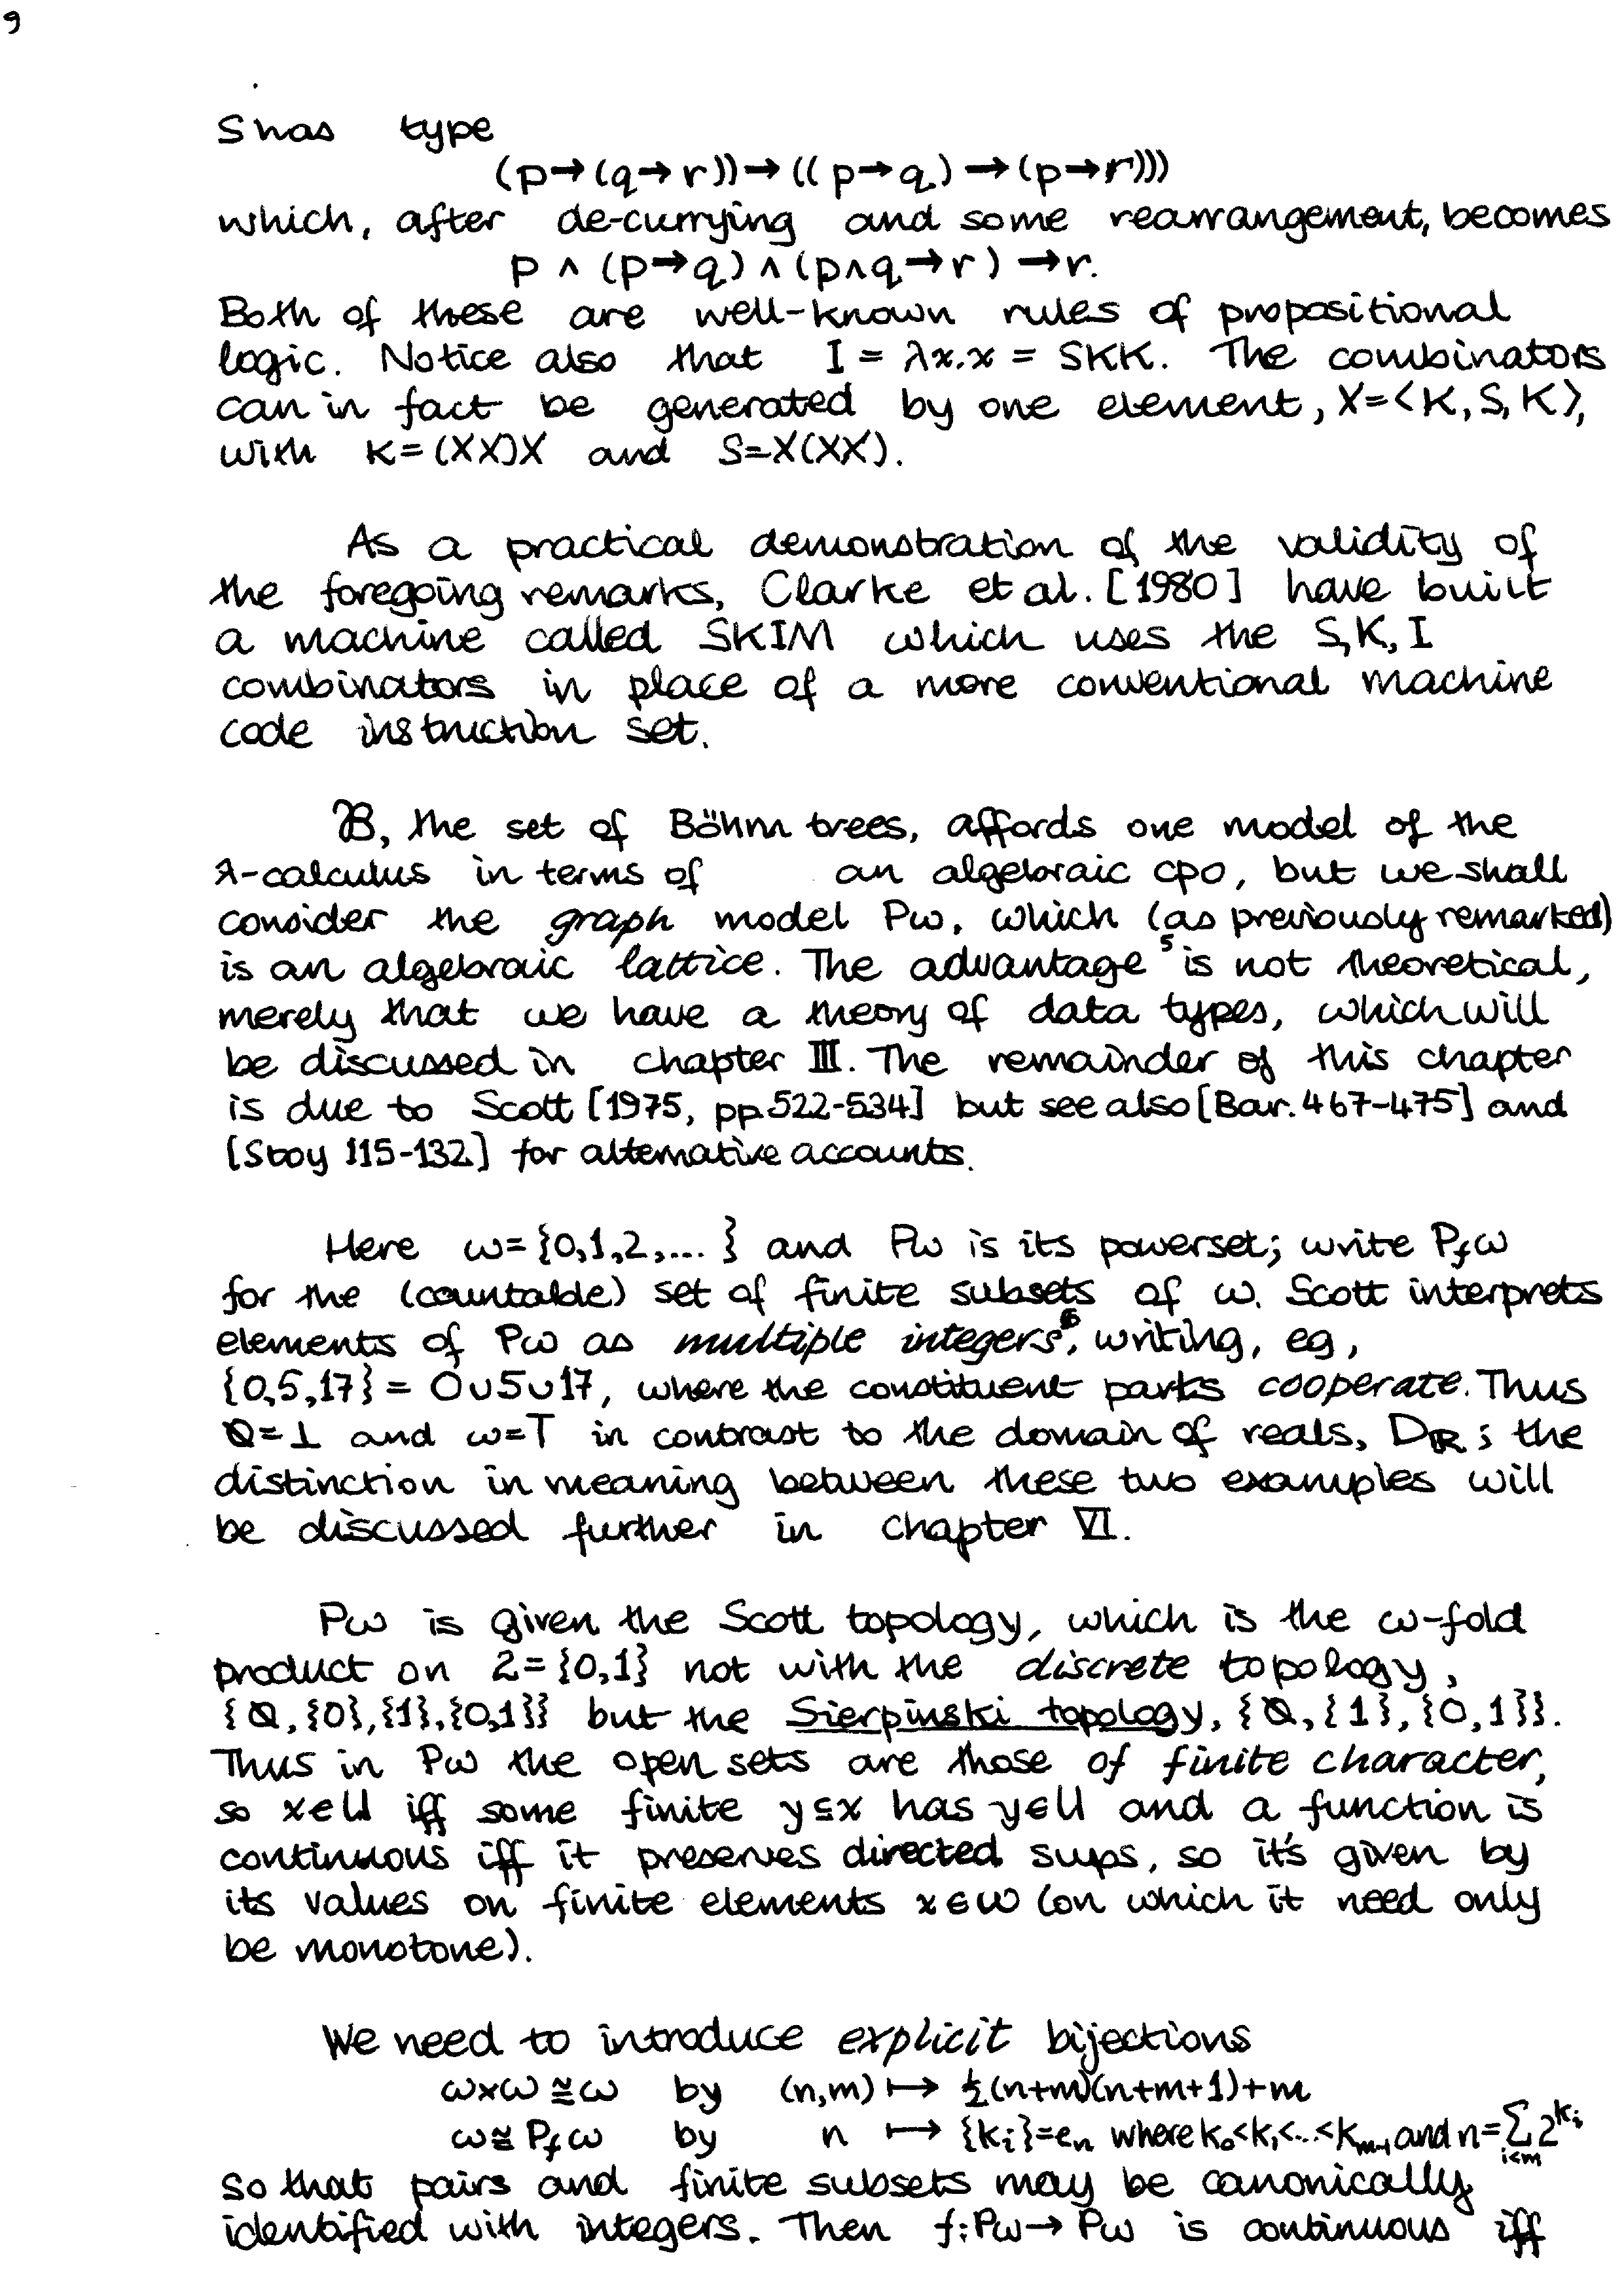 9
S has type
(p→(q→r))→((p→q)→(p→r)))
which, after de-currying and some rearrangement, becomes
p ∧ (p→q) ∧ (p∧q→r) →r.
Both of these are well-known rules of propositional
logic. Notice also that I = λx.x = SKK. The combinators
can in fact be generated by one element, X=<K,S,K>,
with K=(XX)X and S=X(XX).
As a practical demonstration of the validity of
the foregoing remarks, Clarke et al. [1980] have built
a machine called SKIM which uses the S,K,I
combinators in place of a more conventional machine
code instruction set.
ℬ, the set of Böhm trees, affords one model of the
λ-calculus in terms of an algebraic cpo, but we shall
consider the graph model Pω, which (as previously remarked)
is an algebraic lattice. The advantage⁵ is not theoretical,
merely that we have a theory of data types, which will
be discussed in chapter III. The remainder of this chapter
is due to Scott [1975, pp.522-534] but see also [Bar. 467-475] and
[Stoy 115-132] for alternative accounts.
Here ω={0,1,2,...} and Pω is its powerset; write P_fω
for the (countable) set of finite subsets of ω. Scott interprets
elements of Pω as multiple integers⁶, writing, eg,
{0,5,17} = 0∪5∪17, where the constituent parts cooperate. Thus
∅=⊥ and ω=T in contrast to the domain of reals, D_ℝ; the
distinction in meaning between these two examples will
be discussed further in chapter VI.
Pω is given the Scott topology, which is the ω-fold
product on 2={0,1} not with the discrete topology,
{∅,{0},{1},{0,1}} but the Sierpinski topology, {∅,{1},{0,1}}.
Thus in Pω the open sets are those of finite character,
so x∈U iff some finite y⊆x has y∈U and a function is
continuous iff it preserves directed sups, so it's given by
its values on finite elements x∈ω (on which it need only
be monotone).
We need to introduce explicit bijections
ω×ω≅ω by (n,m) ↦ ½(n+m)(n+m+1)+m
ω≅P_fω by n ↦ {k_i}=e_n where k₀<k₁<...<k_{m-1} and n=∑_{i<m} 2^{k_i}
so that pairs and finite subsets may be canonically
identified with integers. Then f:Pω→Pω is continuous iff